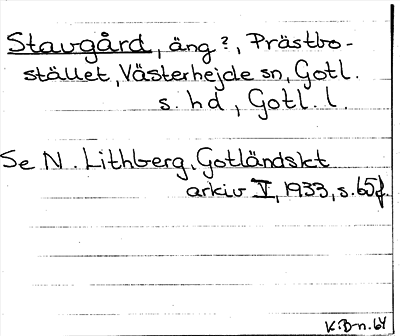 Stavgård, äng?, Prästbo-
stället, Västerhejde sn, Gotl.
s. hd, Gotl. l.
Se N. Lithberg, Gotländskt
arkiv V, 1933, s. 65f.
K.B-n. 64